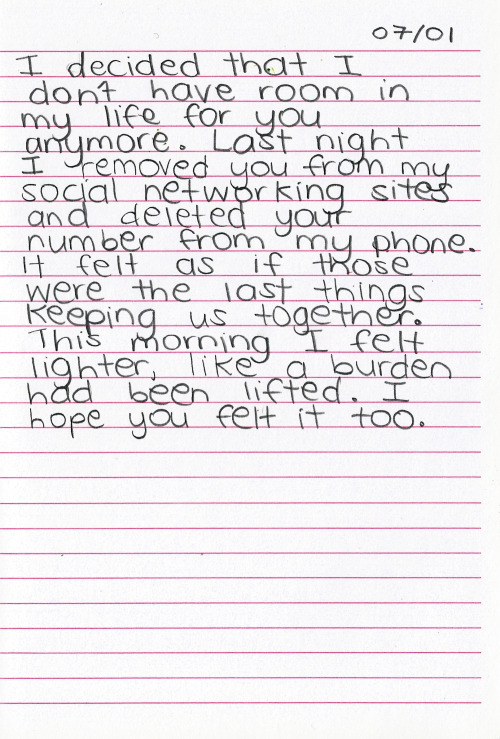 07/01
I decided that I
don't have room in
my life for you
anymore. Last night
I removed you from my
social networking sites
and deleted your
number from my phone.
It felt as if those
were the last things
keeping us together.
This morning I felt
lighter, like a burden
had been lifted. I
hope you felt it too.